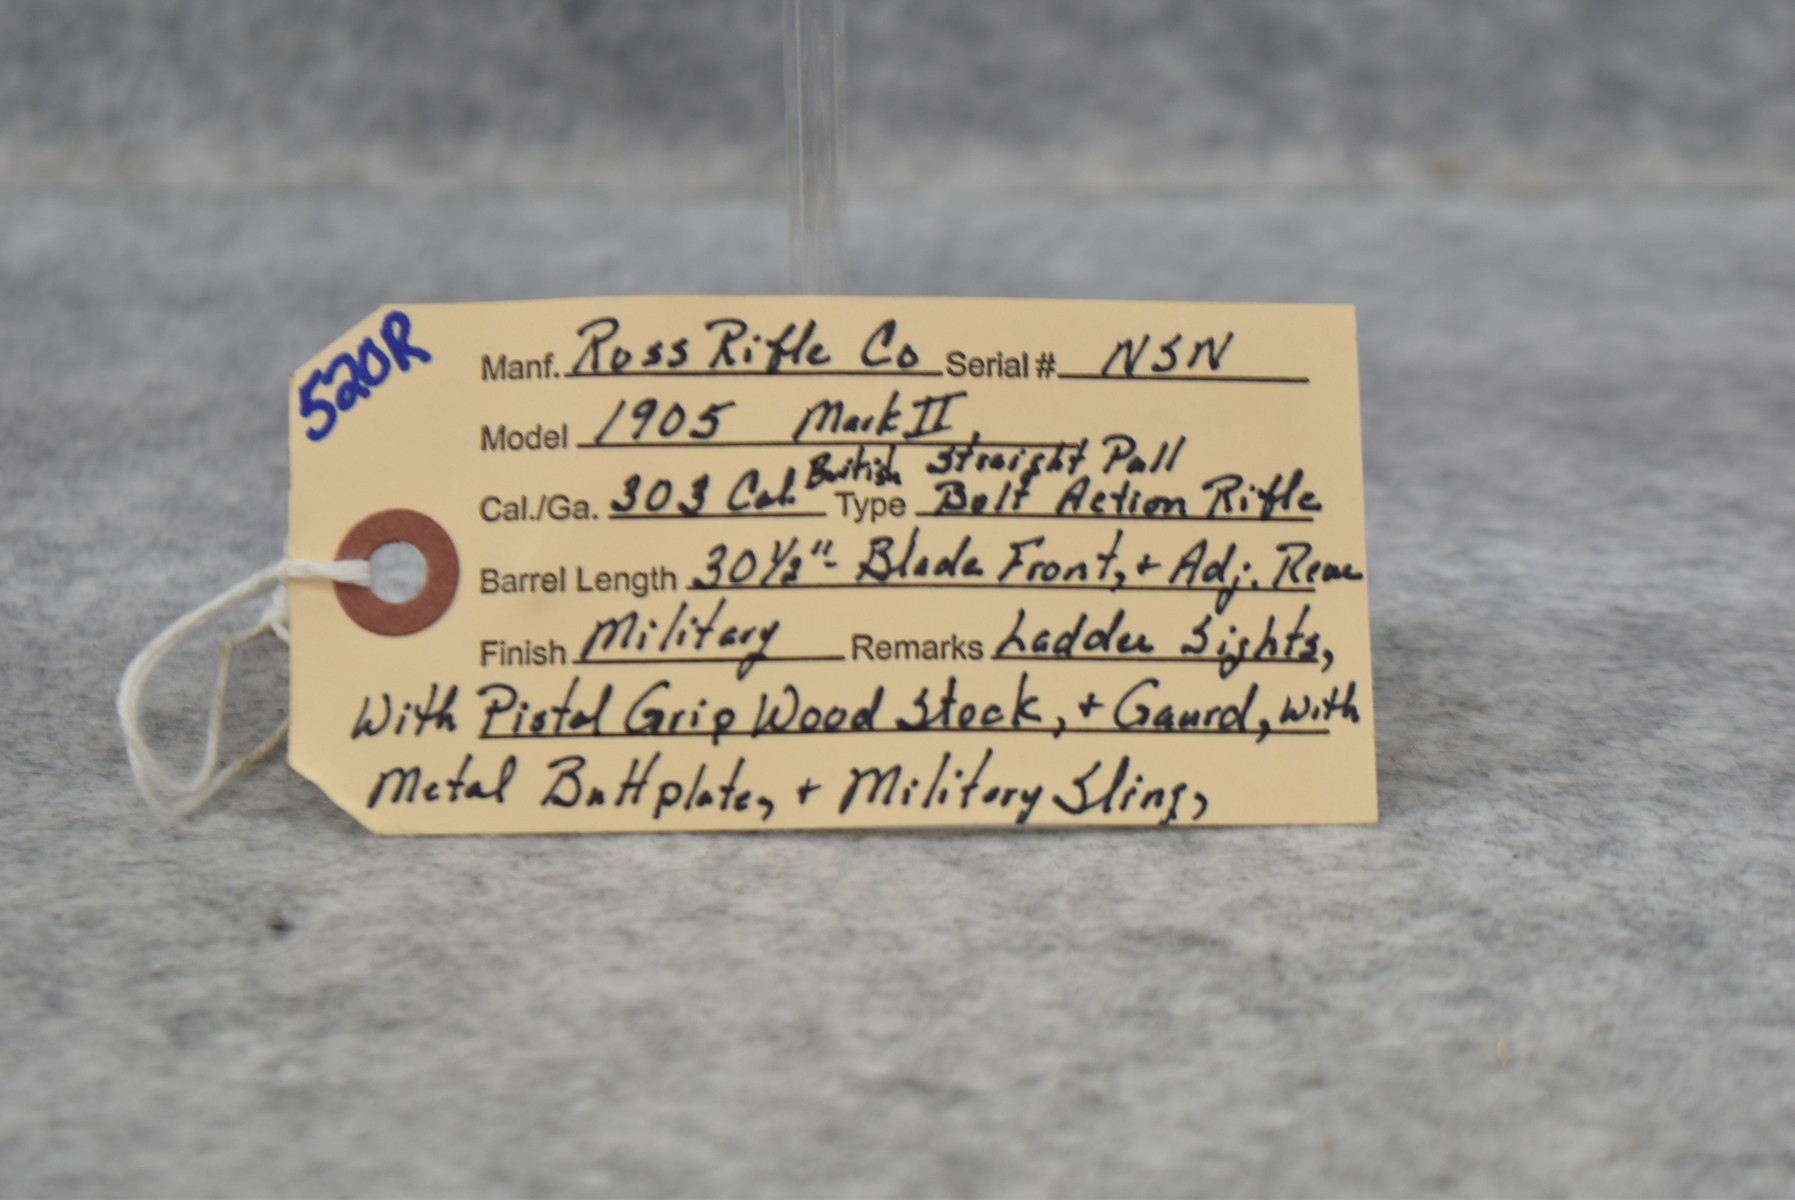 520R
Manf. Ross Rifle Co Serial # NSN
Model 1905 Mark II,
Cal./Ga. 303 Cal. British Type Straight Pull Bolt Action Rifle
Barrel Length 30 1/2" - Blade Front, + Adj. Rear
Finish Military Remarks Ladder Sights,
With Pistol Grip Wood Stock, + Gaurd, with
Metal Buttplate, + Military Sling,